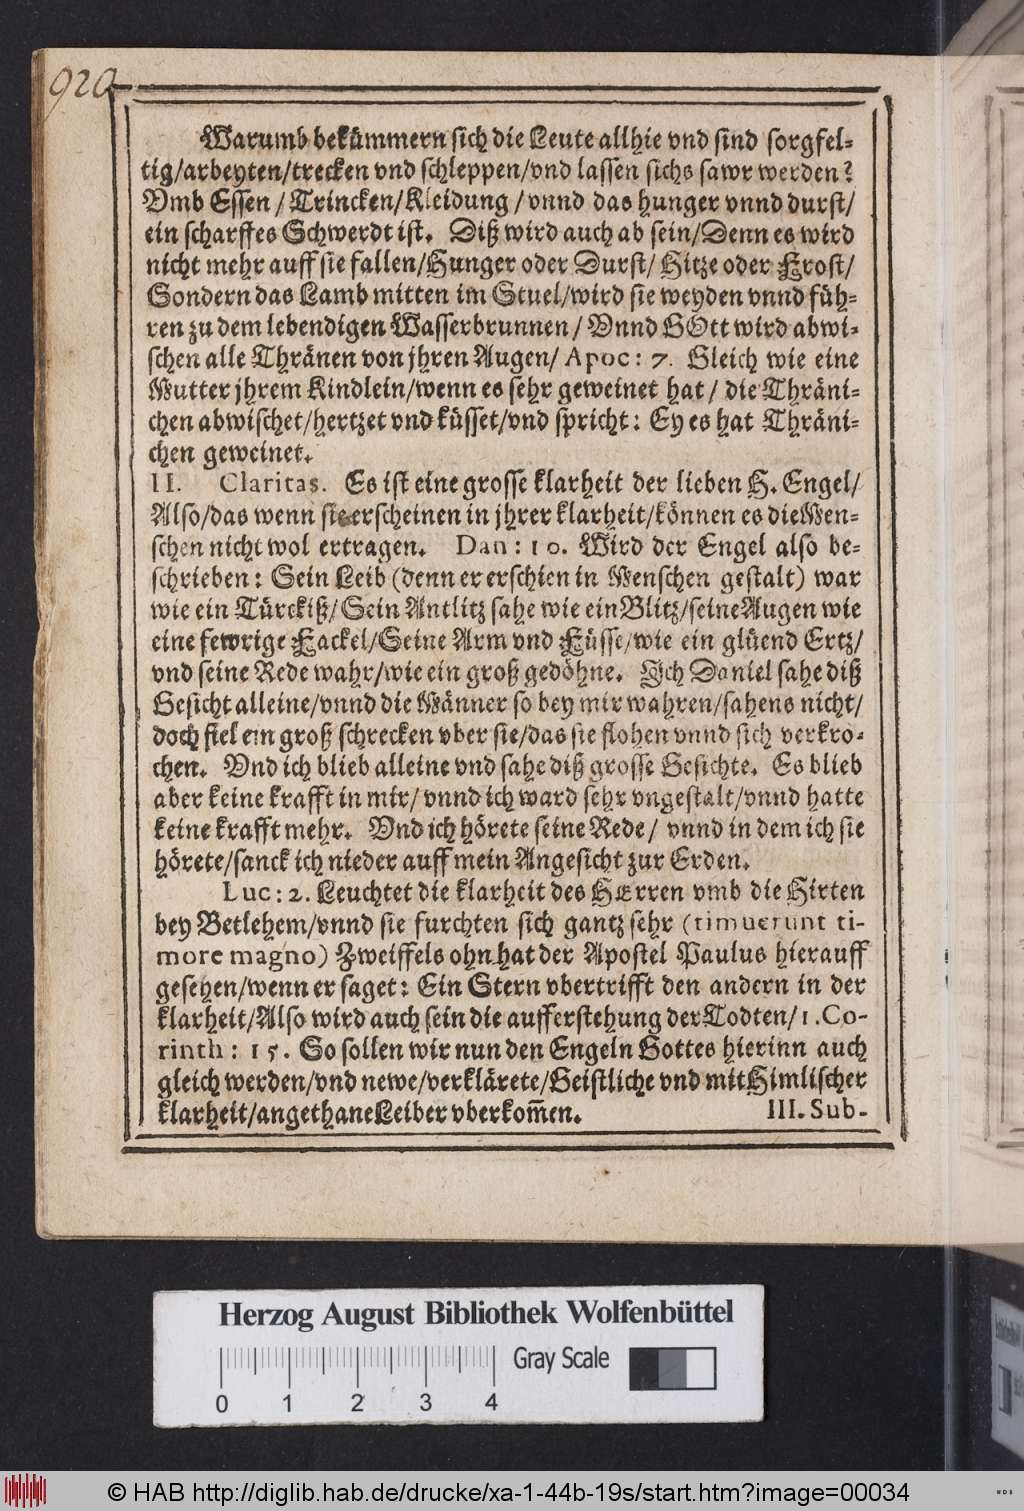 920
Warumb bekümmern sich die Leute allhie vnd sind sorgfel-
tig/arbeyten/trecken vnd schleppen/vnd lassen sichs sawr werden?
Vmb Essen/Trincken/Kleidung/vnnd das hunger vnnd durst/
ein scharffes Schwerdt ist. Diß wird auch ab sein/Denn es wird
nicht mehr auff sie fallen/Hunger oder Durst/Hitze oder Frost/
Sondern das Lamb mitten im Stuel/wird sie weyden vnnd füh-
ren zu dem lebendigen Wasserbrunnen/Vnnd GOtt wird abwi-
schen alle Thränen von jhren Augen/Apoc: 7. Gleich wie eine
Mutter jhrem Kindlein/wenn es sehr geweinet hat/die Thräni-
chen abwischet/hertzet vnd küsset/vnd spricht: Ey es hat Thräni-
chen geweinet.
II. Claritas. Es ist eine grosse klarheit der lieben H. Engel/
Also/das wenn sie erscheinen in jhrer klarheit/können es die Men-
schen nicht wol ertragen. Dan: 10. Wird der Engel also be-
schrieben: Sein Leib (denn er erschien in Menschen gestalt) war
wie ein Türckiß/Sein Antlitz sahe wie ein Blitz/seine Augen wie
eine fewrige Fackel/Seine Arm vnd Füsse/wie ein glüend Ertz/
vnd seine Rede wahr/wie ein groß gedöhne. Ich Daniel sahe diß
Gesicht alleine/vnnd die Männer so bey mir wahren/sahens nicht/
doch fiel ein groß schrecken vber sie/das sie flohen vnnd sich verkro-
chen. Vnd ich blieb alleine vnd sahe diß grosse Gesichte. Es blieb
aber keine krafft in mir/vnnd ich ward sehr vngestalt/vnnd hatte
keine krafft mehr. Vnd ich hörete seine Rede/vnnd in dem ich sie
hörete/sanck ich nieder auff mein Angesicht zur Erden.
Luc: 2. Leuchtet die klarheit des HErren vmb die Hirten
bey Betlehem/vnnd sie furchten sich gantz sehr (timuerunt ti-
more magno) Zweiffels ohn hat der Apostel Paulus hierauff
gesehen/wenn er saget: Ein Stern vbertrifft den andern in der
klarheit/Also wird auch sein die aufferstehung der Todten/1. Co-
rinth: 15. So sollen wir nun den Engeln Gottes hierinn auch
gleich werden/vnd newe/verklärete/Geistliche vnd mit Himlischer
klarheit/angethane Leiber vberkom̃en.
III. Sub-
Herzog August Bibliothek Wolfenbüttel
Gray Scale
0 1 2 3 4
© HAB http://diglib.hab.de/drucke/xa-1-44b-19s/start.htm?image=00034